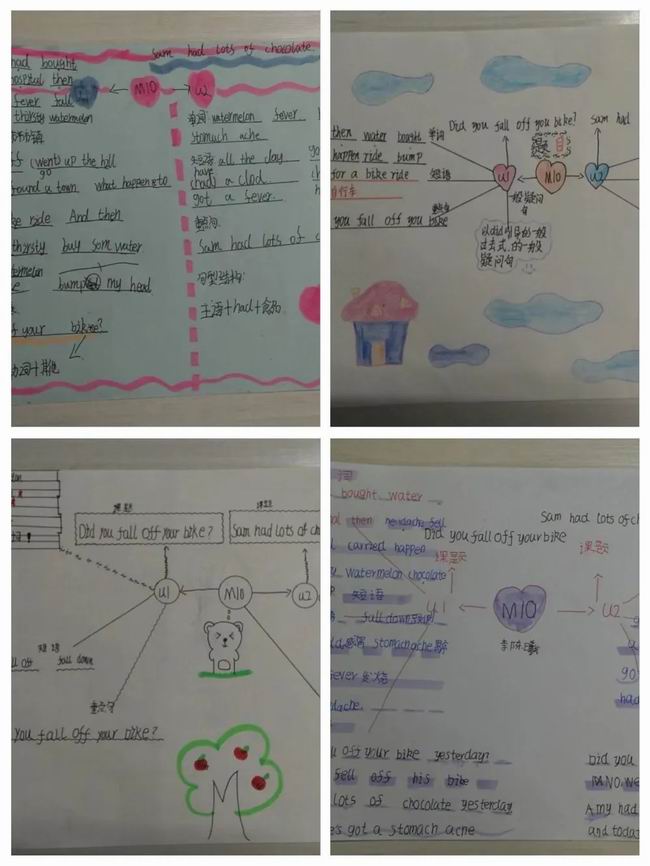 Sam had lots of chocolate
had bought
hospital then
M10
U2
fever fall
thirsty watermelon
单词 watermelon fever
stomach ache
went up the hill
go
短语 all the day
have
(had) a clod
got a fever.
around a town what happened to
ride And then
重点句
Sam had lots of c
thirsty buy som water
句型结构:
bump my head
主语+had+食物
your bikme?
动词+其他
Did you fall off you bike?
Sam had
then water bought 单词
happen ride bump
for a bike ride 短语
自行车
U1
M10
U2
一般疑问句
you fall off you bike
以did引导的一般
过去式的一般
疑问句
课题
课题
Did you fall off your bike?
Sam had lots of ch
U1
M10
U2
短语
fall off fall down
重点句
you fall off your bike?
词
bought water
then headache fell
Sam had lots of ch
Did you fall off your bike
carried happen
课题
课题
watermelon chocolate
短语
U1
M10
U2
fall down
stomachache
fever 发烧
go
had
off your bike yesterday?
Did you
fell off his bike
lots of chocolate yesterday
Amy had
's got a stomach ache
and toda